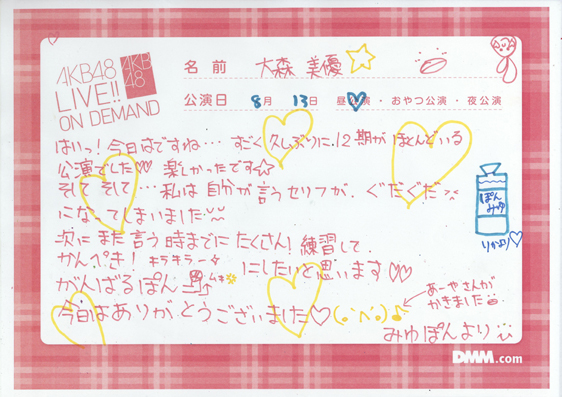 AKB48
LIVE!!
ON DEMAND
AKB
48
名前 大森 美優
公演日 8月 13日 昼公演・おやつ公演・夜公演
はいっ!今日はですね…すごく久しぶりに、12期がほとんどいる
公演でした♡♡ 楽しかったです☆
そして そして…私は自分が言うセリフが、ぐだぐだ
になってしまいました
次にまた言う時までにたくさん!練習して、
かんぺき!キラキラー☆にしたいと思います♡♡
がんばるぽん ムキ
今日はありがとうございました♡
あーやさんが
かきました
みゆぽんより
ぽん
みゆ
りかより♡
DMM.com